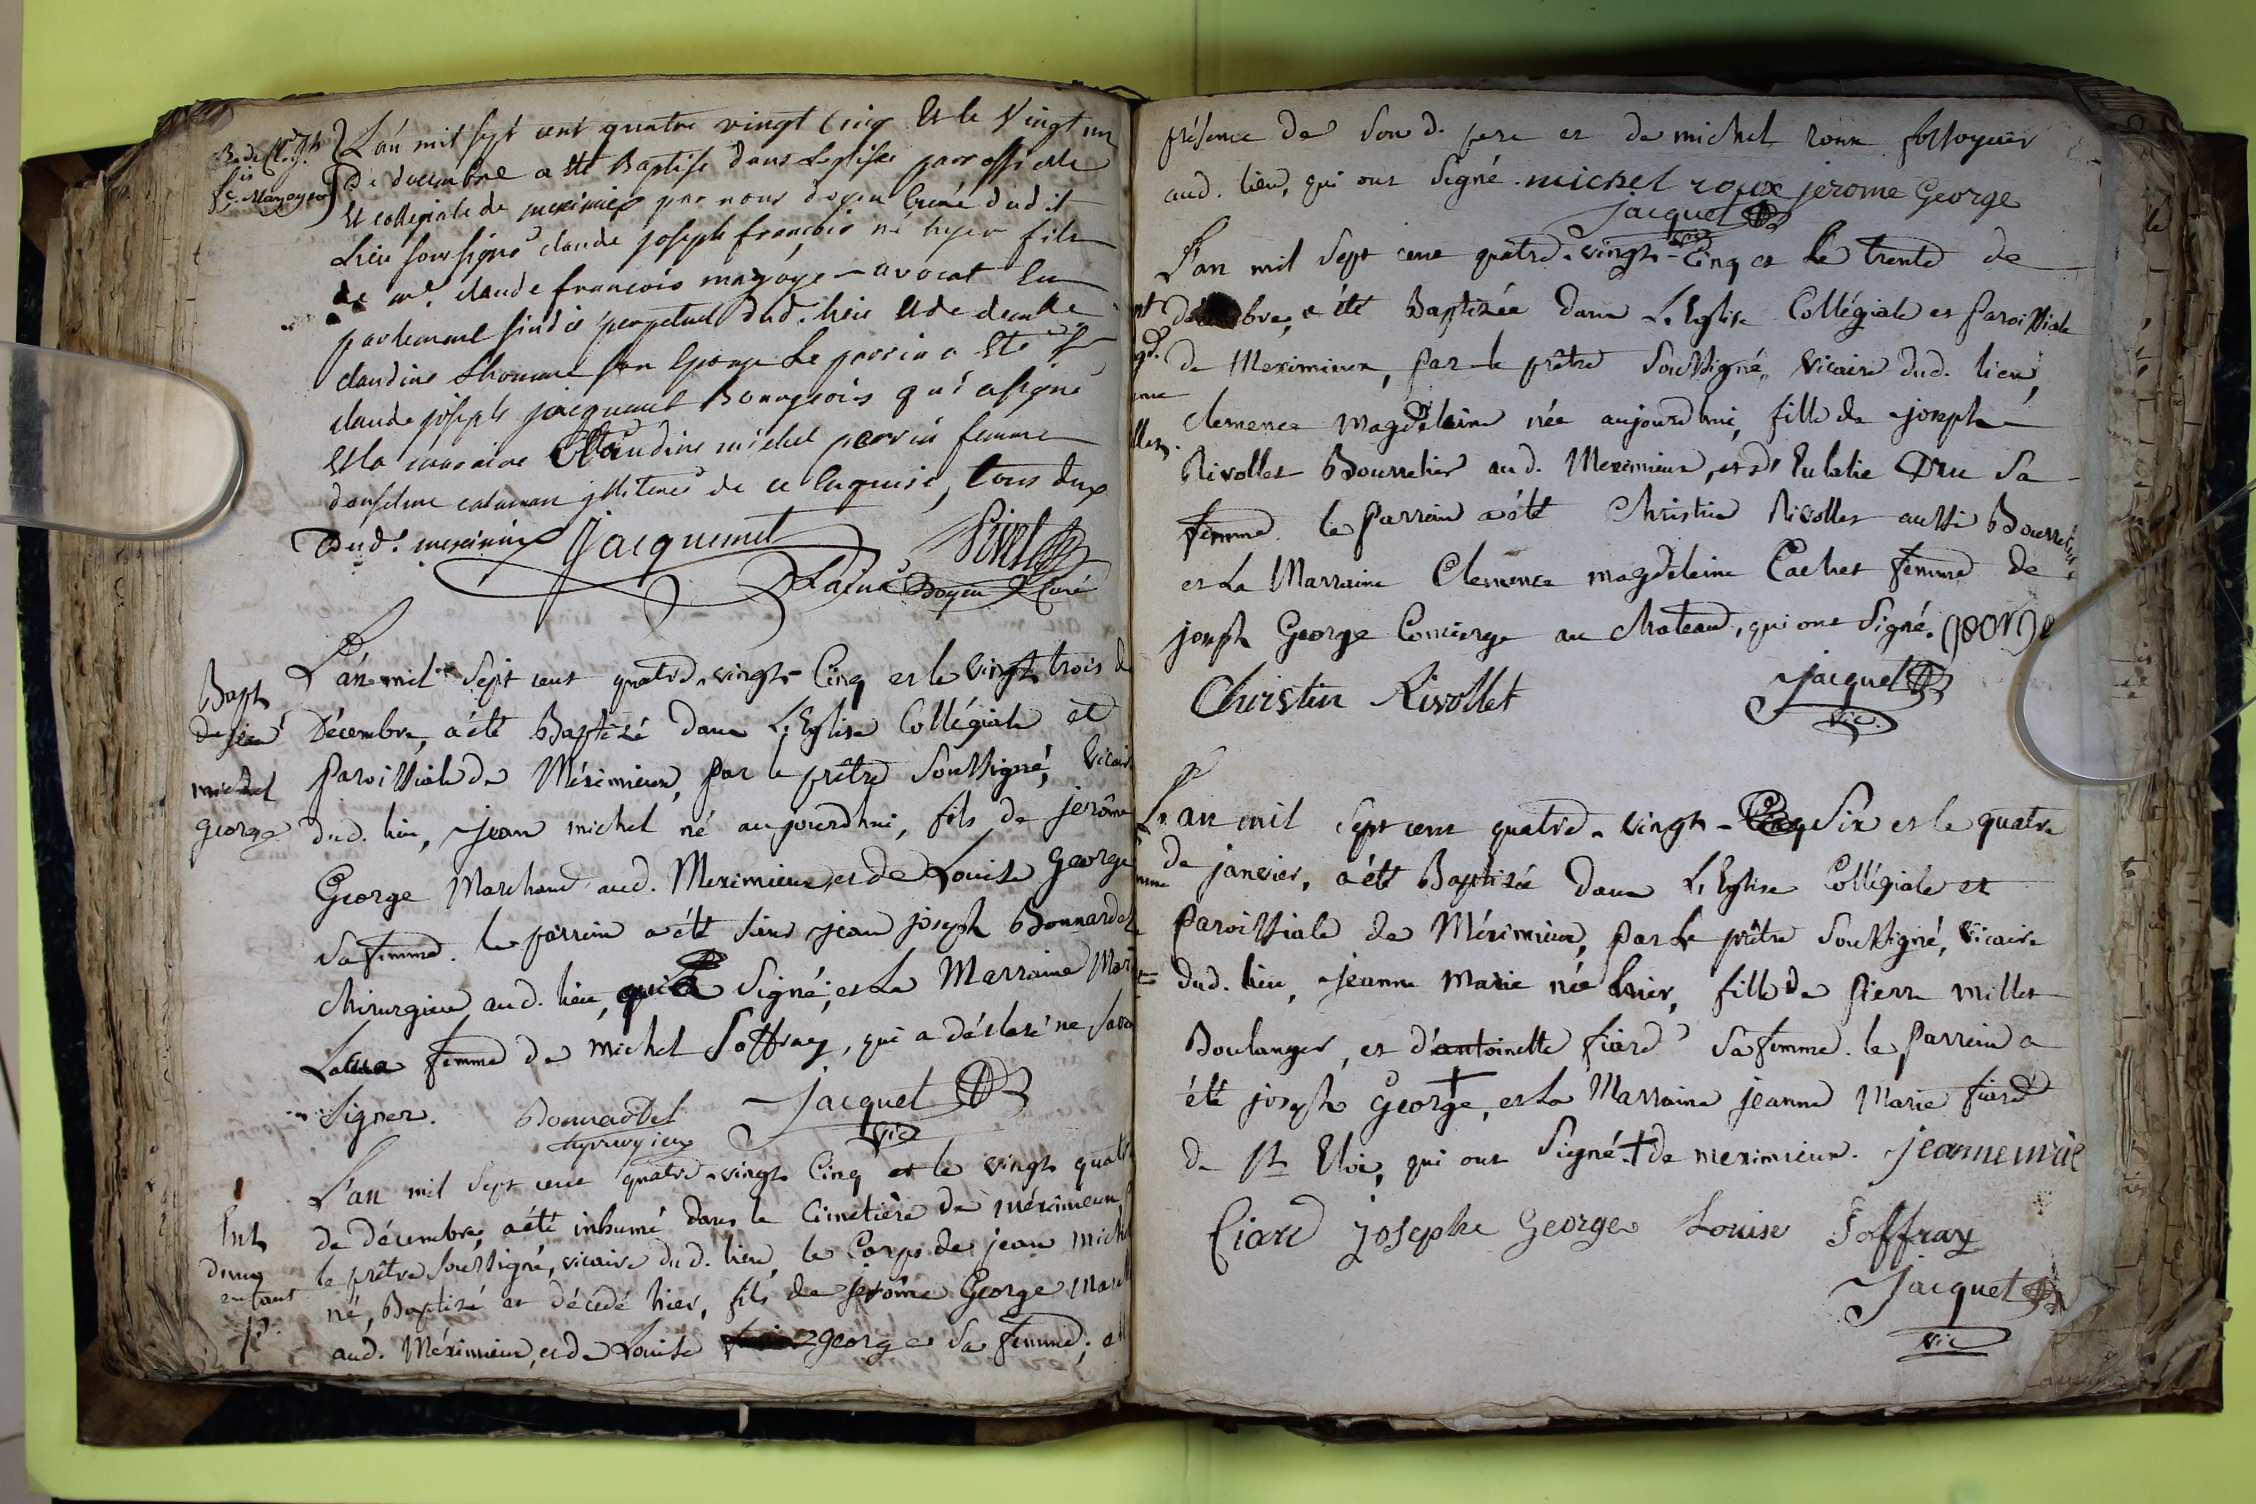 L'an mil sept cent quatre vingt cinq Et le Vingt un
De decembre a été Baptisé dans L'eglise parroissialle
Et collegiale de meximieux par nous doyen Curé dudit
Lieu soussigné claude joseph françois né hyer fils
de mr. claude françois magoyer avocat En
parlement sindic perpetuel dud. lieu Et de demlle
claudine thomas son Epouse Le parrin a Eté Sr
claude joseph jacquemet Bourgeois qui a signé
Et la maraine Claudine michel perrin femme
tous deux
Dud. meximieux Jacquemet
Doyen Curé
Bapt
de jean
michel
george
L'an mil Sept cent quatre-vingt-Cinq et le vingt trois de
Décembre, a été Baptisé dans L'Eglise Collégiale et
Paroissiale de Méximieux, par le prêtre Soussigné, Vicaire
dud. lieu, jean michel né aujourd'hui, fils de jerôme
George Marchand aud. Meximieux, et de Louise George
Sa femme. le parrein a été Sieur jean joseph Bonnardet
chirurgien aud. lieu, qui a Signé; et La Marraine
femme de Michel Soffray, qui a déclaré ne
Signer. Bonnardel Jacquet
chyrurgien vic
L'an mil Sept cent quatre-vingt Cinq et le vingt quatre
Ent
dung
enfant
de décembre, a été inhumé dans le Cimetière de méximieux,
le prêtre Soussigné, vicaire dud. lieu, le Corps de jean michel
né, Baptisé et décédé hier, fils de Jerôme George
aud. Méximieux, et de Louise george Sa femme;
présence de Son d. pere et de michel roux fossoyeur
aud. lieu, qui ont Signé. michel roux jerome George
Jacquet
vic
L'an mil Sept cent quatre-vingt-Cinq et le trente de
décembre, a été Baptisée dans L'Eglise Collégiale et Paroissiale
de Meximieux, par le prêtre Soussigné, Vicaire dud. lieu,
Clemence Magdeleine née aujourd'hui, fille de joseph
Rivollet Bourrelier aud. Meximieux, et d'Eulalie Dru Sa
femme. le Parrein a été Christin Rivollet aussi Bourrelier
et La Marraine Clemence magdeleine Cachet femme de
joseph George Concierge au chateau, qui ont Signé. george
Christin Rivollet Jacquet
vic.
L'an mil Sept cent quatre-vingt-Cinq Six et le quatre
de janvier, a été Baptisée dans L'Eglise Collégiale et
Paroissiale de Méximieux, par Le prêtre Soussigné, Vicaire
dud. lieu, jeanne Marie née hier, fille de Pierre Millet
Boulanger, et d'antoinette fiard Sa femme. le Parrein a
été joseph George, et La Marraine jeanne Marie fiard
de St Eloi, qui ont Signé. † de meximieux. jeanne marie
fiard josephe George Louise Soffray
Jacquet
vic